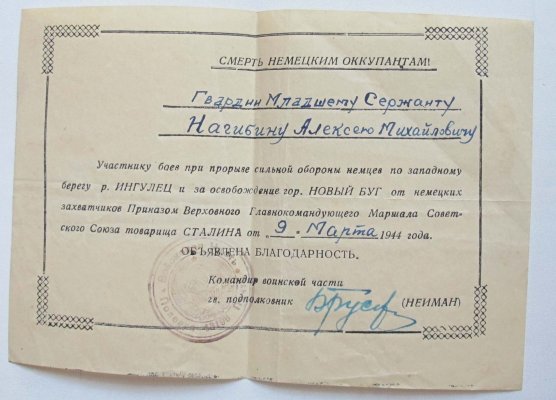 СМЕРТЬ НЕМЕЦКИМ ОККУПАНТАМ!
Гвардии Младшему Сержанту
Нагибину Алексею Михайловичу
Участнику боев при прорыве сильной обороны немцев по западному
берегу р. ИНГУЛЕЦ и за освобождение гор. НОВЫЙ БУГ от немецких
захватчиков Приказом Верховного Главнокомандующего Маршала Совет-
ского Союза товарища СТАЛИНА от „9 . Марта 1944 года.
ОБЪЯВЛЕНА БЛАГОДАРНОСТЬ.
Командир воинской части
гв. подполковник (НЕИМАН)